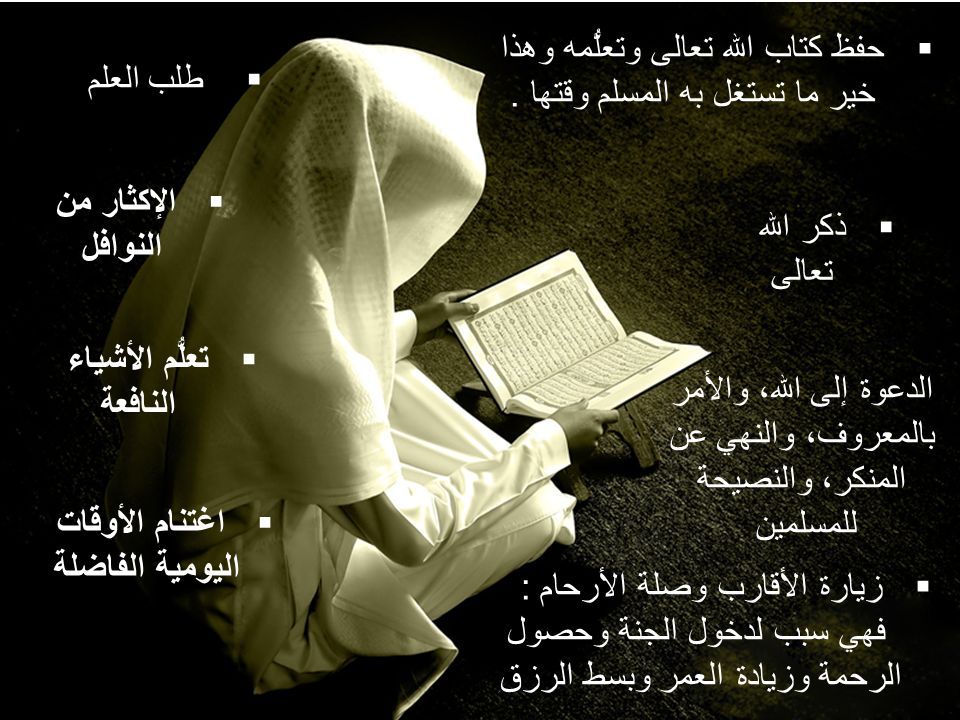 ▪ حفظ كتاب الله تعالى وتعلُّمه وهذا
خير ما تستغل به المسلم وقتها .
▪ ذكر الله
تعالى
الدعوة إلى الله، والأمر
بالمعروف، والنهي عن
المنكر، والنصيحة
للمسلمين
▪ زيارة الأقارب وصلة الأرحام :
فهي سبب لدخول الجنة وحصول
الرحمة وزيادة العمر وبسط الرزق
▪ طلب العلم
▪ الإكثار من
النوافل
▪ تعلُّم الأشياء
النافعة
▪ اغتنام الأوقات
اليومية الفاضلة